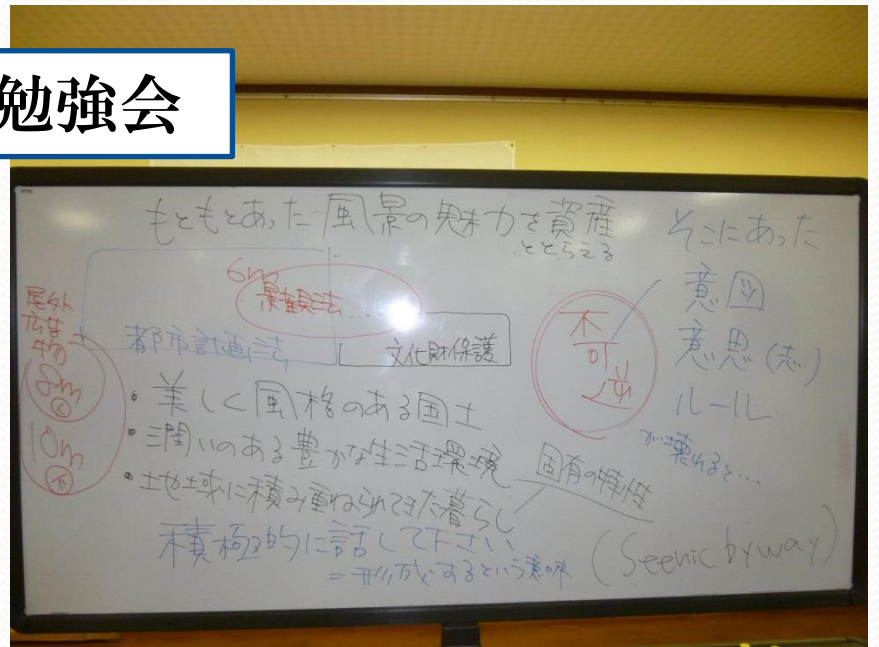 勉強会
もともとあった風景の魅力を資産
ととらえる
そこにあった
意図
意思(志)
ルール
が壊れると…
不
可
逆
6m
景観法
都市計画法
文化財保護
屋外
広告
物
8m
10m
・美しく風格のある国土
・潤いのある豊かな生活環境
・土地域に積み重ねられてきた暮らし
固有の特性
積極的に話して下さい
=形成するという意味
(Seenic byway)